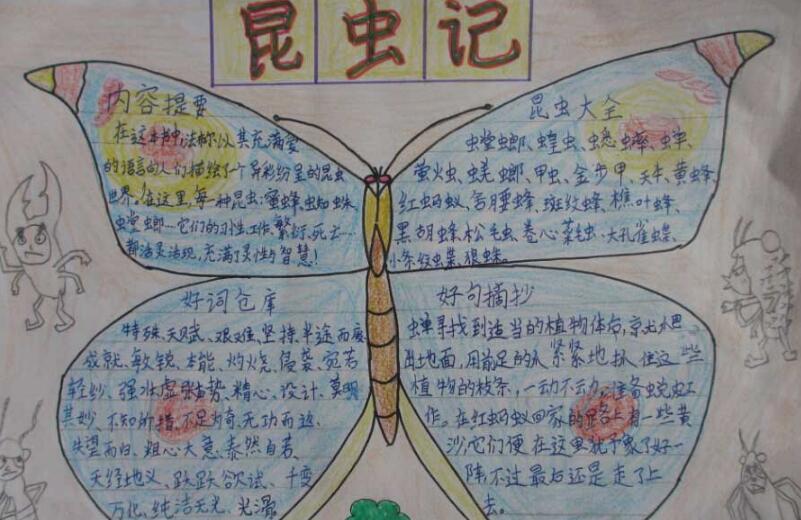 昆虫记
内容提要
在这本书中,法布尔以其充满爱
的语言向人们描绘了一个异彩纷呈的昆虫
世界。在这里,每一种昆虫:蜜蜂、蜘蛛、
螳螂…它们的习性、工作、繁衍、死亡…
都活灵活现,充满了灵性与智慧!
昆虫大全
螳螂、蝗虫、蟋蟀、蝉、
萤火虫、蜣螂、甲虫、金步甲、天牛、黄蜂、
红蚂蚁、长腰蜂、斑纹蜂、樵叶蜂、
黑胡蜂、松毛虫、卷心菜毛虫、大孔雀蝶、
小条纹蝶、狼蛛。
好词仓库
特殊、天赋、艰难、坚持、半途而废
成就、敏锐、本能、灼烧、侵袭、宛若
轻纱、强壮、虚张声势、精心、设计、莫明
其妙、不知所措、不足为奇、无功而返、
失望而归、粗心大意、泰然自若、
天经地义、跃跃欲试、千变
万化、纯洁无光、光滑
好句摘抄
蝉寻找到适当的植物体后,就爬
出地面,用前足的爪紧紧地抓住这些
植物的枝条,一动不动,准备蜕皮工
作。在红蚂蚁回家的路上有一些黄
沙,它们便在这里犹豫了好一
阵,不过最后还是走了上
去。